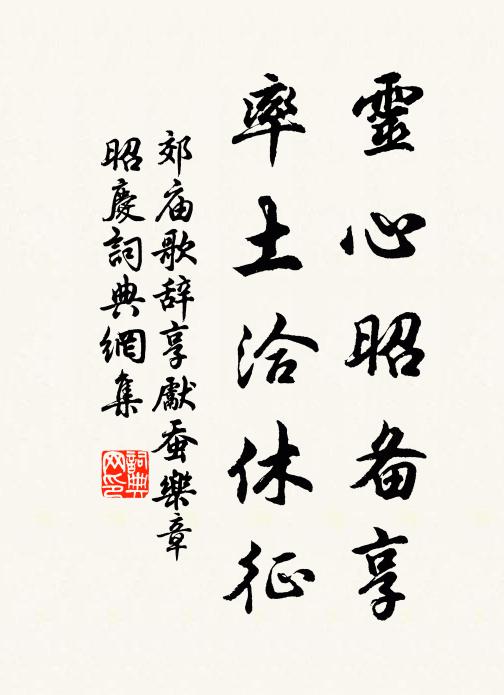 靈心昭备享
率土洽休征
郊庙歌辞享獻蚕樂章
昭慶詞典網集
詞典网印